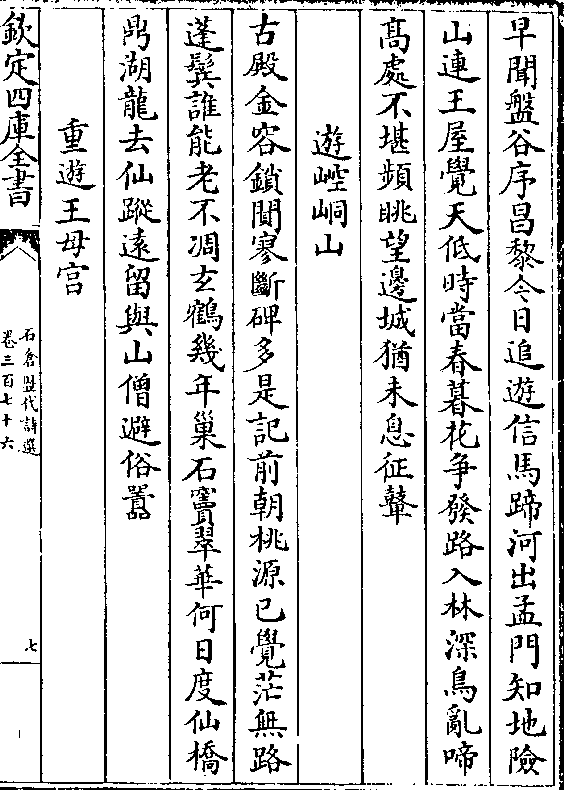 早聞盤谷序昌黎今日追遊信馬蹄河出孟門知地險
山連王屋覺天低時當春暮花爭發路入林深鳥亂啼
髙處不堪頻眺望邊城猶未息征鼙
遊崆峒山
古殿金容鎖閴寥斷碑多是記前朝桃源已覺茫無路
蓬鬓誰能老不凋玄鶴幾年巢石竇翠華何日度仙橋
鼎湖龍去仙蹤遠留與山僧避俗囂
重遊王母宫
欽定四庫全書
石倉歷代詩選
卷三百七十六
七